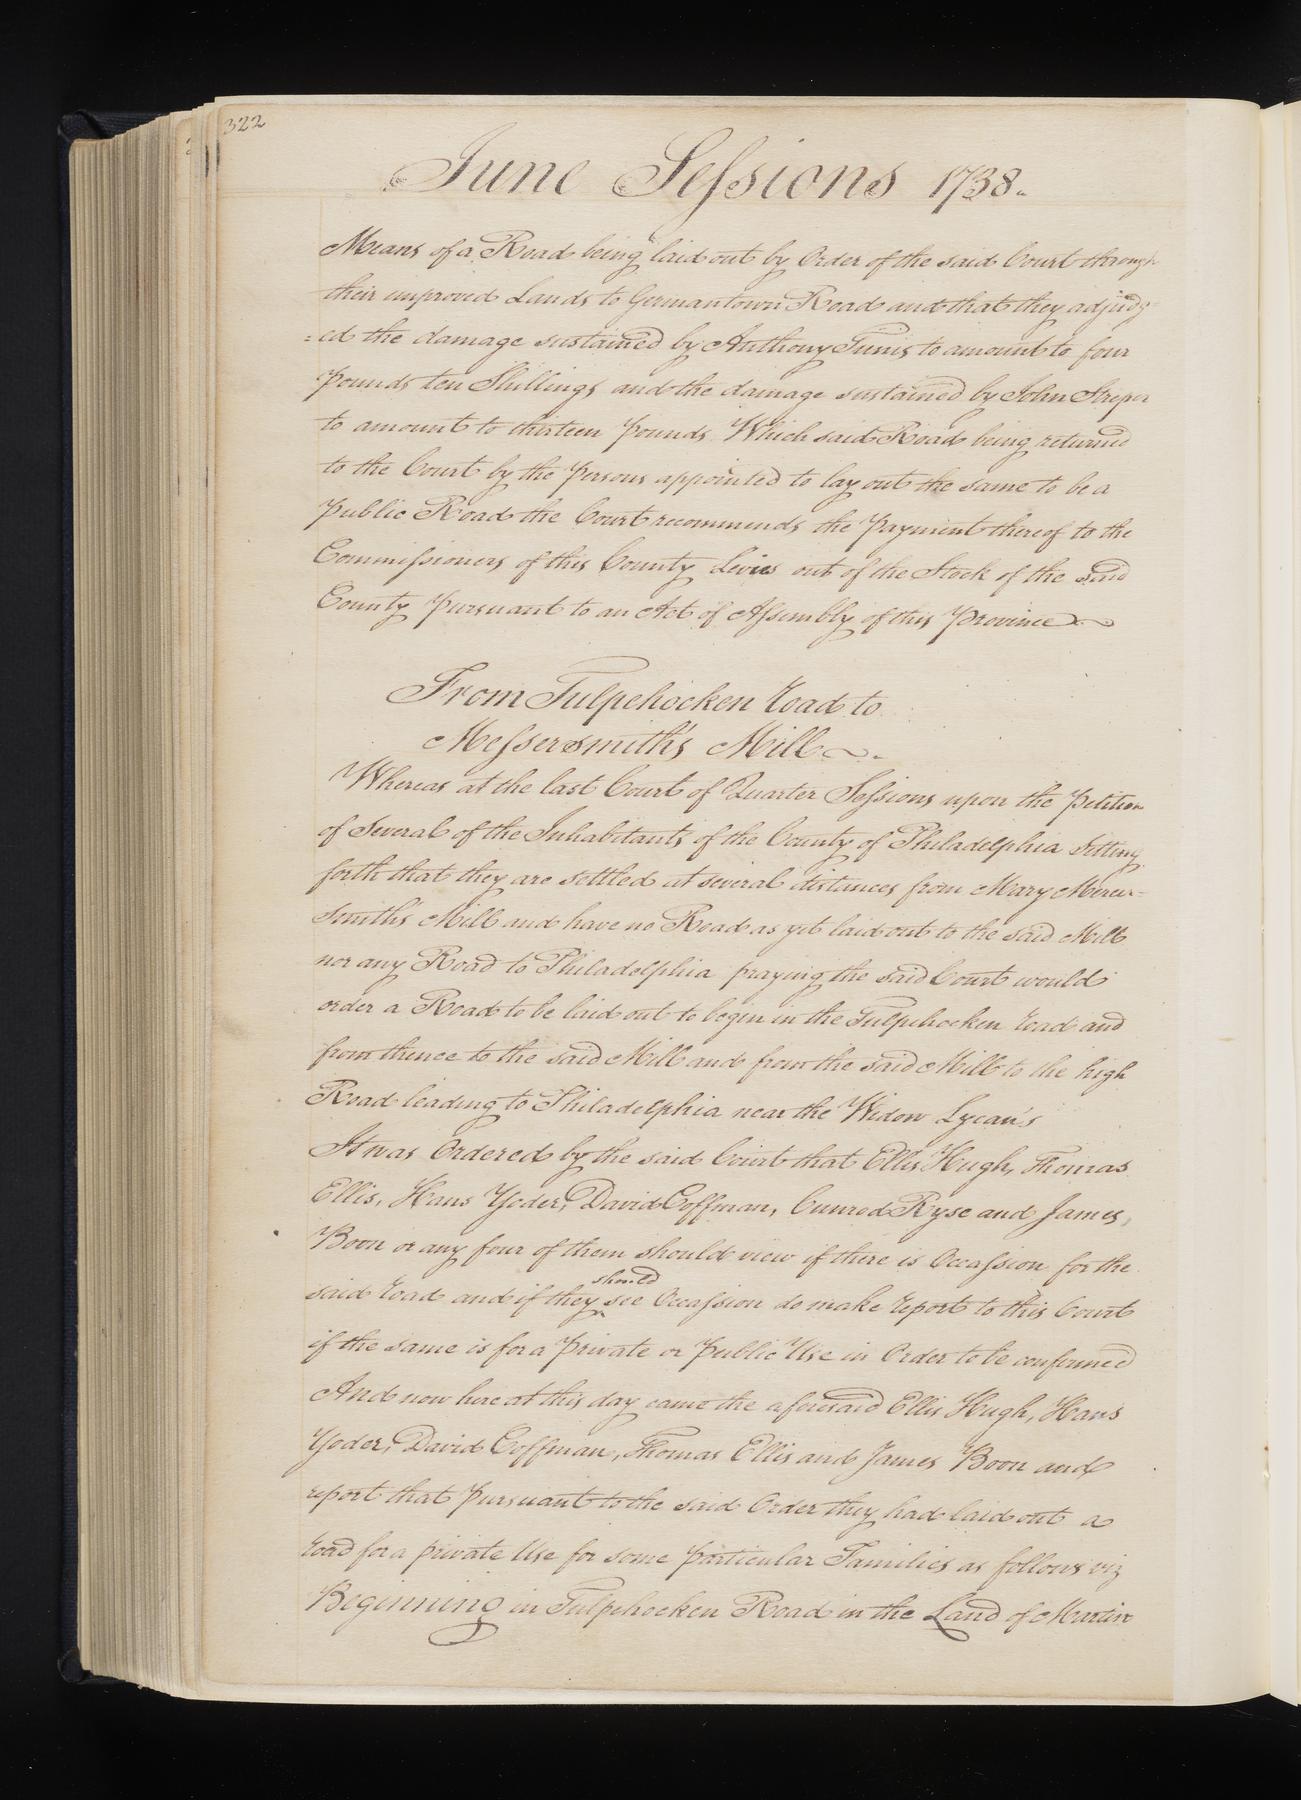 322
June Sessions 1738.
Means of a Road being laid out by Order of the said Court through
their improved Lands to Germantown Road and that they adjudg=
=ed the damage sustained by Anthony Tunis to amount to four
Pounds ten Shillings and the damage sustained by John Striper
to amount to thirteen Pounds Which said Road being returned
to the Court by the Persons appointed to lay out the same to be a
Public Road the Court recommends the Payment thereof to the
Commissioners of this County Levies out of the Stock of the said
County Pursuant to an Act of Assembly of this Province
From Tulpehocken road to
Messersmith's Mill
Whereas at the last Court of Quarter Sessions upon the Petition
of Several of the Inhabitants of the County of Philadelphia setting
forth that they are settled at several distances from Mary Mercer=
smith's Mill and have no Road as yet laid out to the said Mill
nor any Road to Philadelphia praying the said Court would
order a Road to be laid out to begin in the Tulpehocken road and
from thence to the said Mill and from the said Mill to the high
Road leading to Philadelphia near the Widow Lycan's
It was Ordered by the said Court that Ellis Hugh, Thomas
Ellis, Hans Yoder, David Coffman, Cunrod Ryse and James
Boon or any four of them should view if there is Occassion for the
said road and if they should see Occassion do make report to this Court
if the same is for a Private or Public Use in Order to be confirmed
And now here at this day came the aforesaid Ellis Hugh, Hans
Yoder, David Coffman, Thomas Ellis and James Boon and
report that Pursuant to the said Order they had laid out a
road for a private Use for some particular Families as follows viz
Beginning in Tulpehocken Road in the Land of Martin